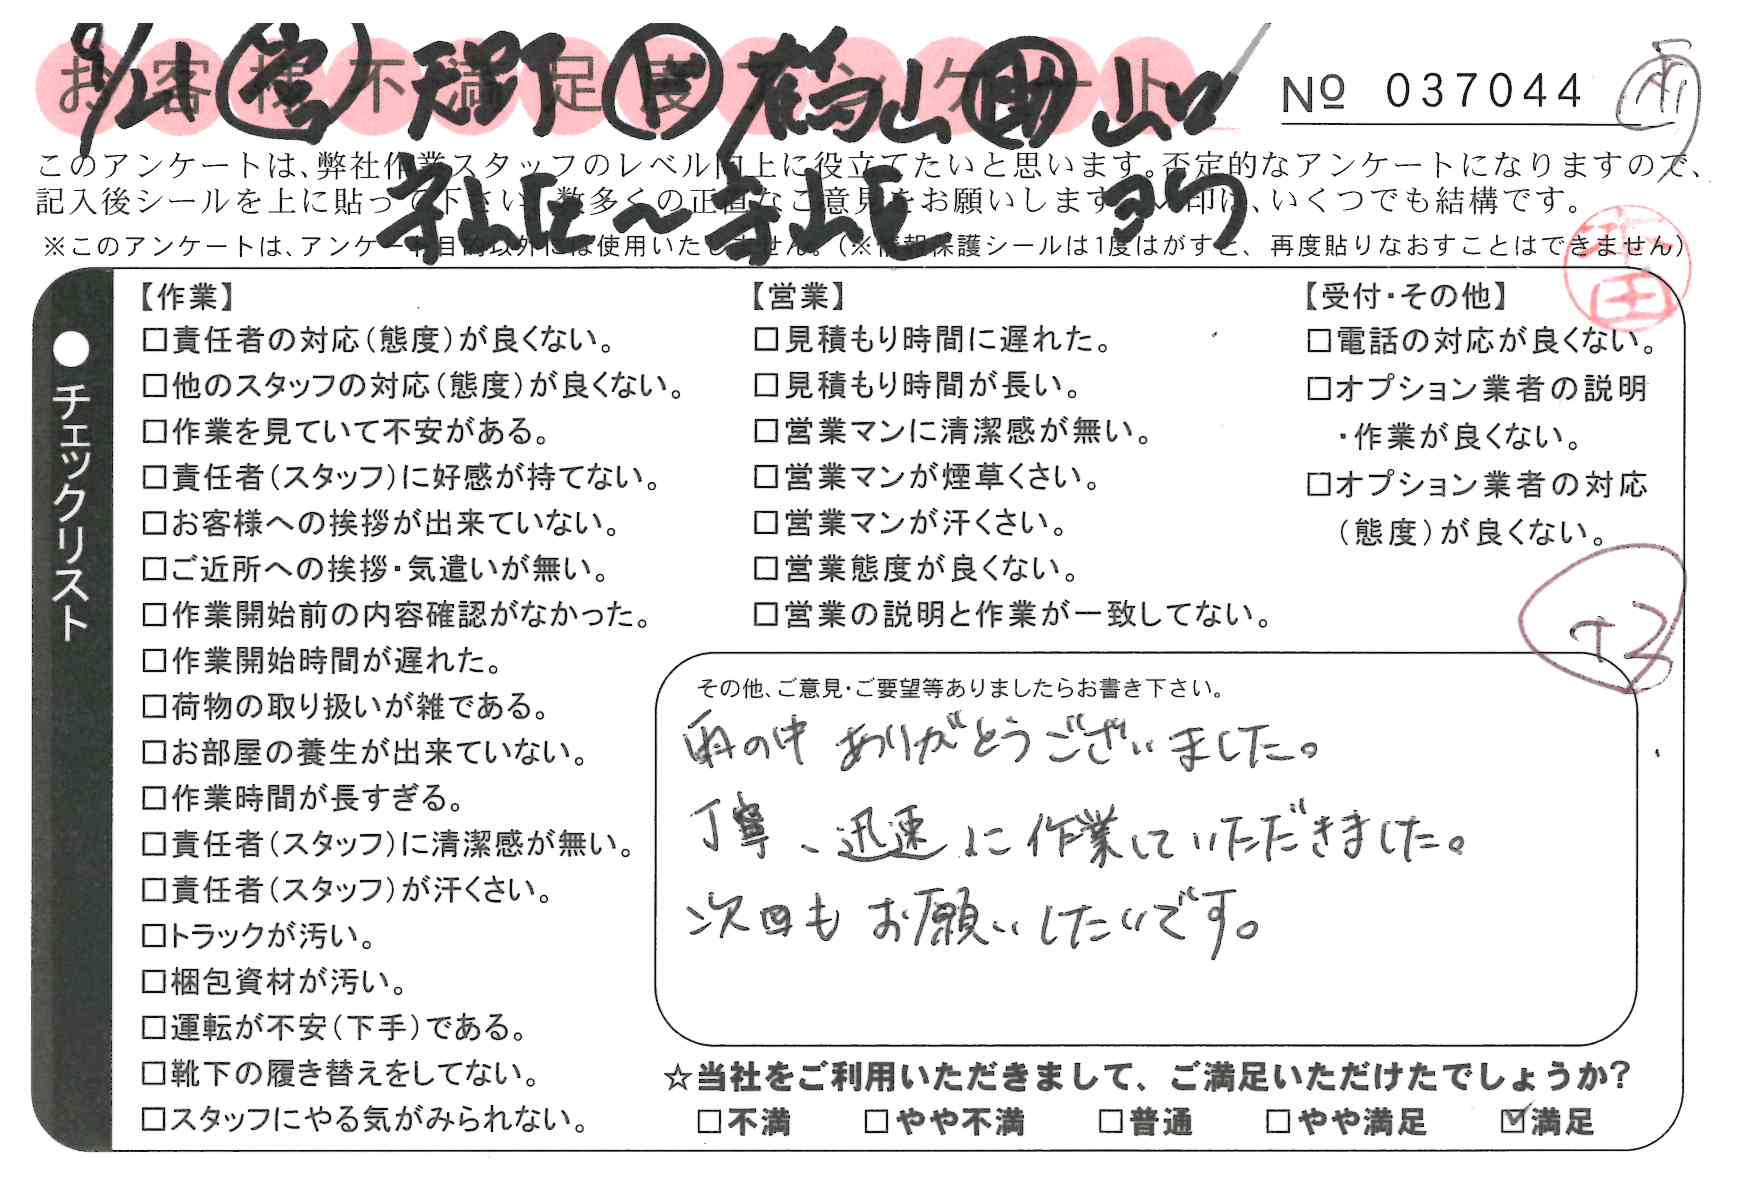 お客様不満足度アンケート
9/21 (営) 天野 (ト) 鶴山 (助) 山口
No 037044
このアンケートは、弊社作業スタッフのレベル向上に役立てたいと思います。否定的なアンケートになりますので、
記入後シールを上に貼って下さい。数多くの正直なご意見をお願いします。レ印は、いくつでも結構です。
※このアンケートは、アンケート目的以外には使用いたしません。(※情報保護シールは1度はがすと、再度貼りなおすことはできません)
●チェックリスト
【作業】
□責任者の対応(態度)が良くない。
□他のスタッフの対応(態度)が良くない。
□作業を見ていて不安がある。
□責任者(スタッフ)に好感が持てない。
□お客様への挨拶が出来ていない。
□ご近所への挨拶・気遣いが無い。
□作業開始前の内容確認がなかった。
□作業開始時間が遅れた。
□荷物の取り扱いが雑である。
□お部屋の養生が出来ていない。
□作業時間が長すぎる。
□責任者(スタッフ)に清潔感が無い。
□責任者(スタッフ)が汗くさい。
□トラックが汚い。
□梱包資材が汚い。
□運転が不安(下手)である。
□靴下の履き替えをしてない。
□スタッフにやる気がみられない。
【営業】
□見積もり時間に遅れた。
□見積もり時間が長い。
□営業マンに清潔感が無い。
□営業マンが煙草くさい。
□営業マンが汗くさい。
□営業態度が良くない。
□営業の説明と作業が一致してない。
【受付・その他】
□電話の対応が良くない。
□オプション業者の説明
・作業が良くない。
□オプション業者の対応
(態度)が良くない。
その他、ご意見・ご要望等ありましたらお書き下さい。
雨の中 ありがとうございました。
丁寧、迅速に作業していただきました。
次回もお願いしたいです。
☆当社をご利用いただきまして、ご満足いただけたでしょうか?
□不満 □やや不満 □普通 □やや満足 ☑満足